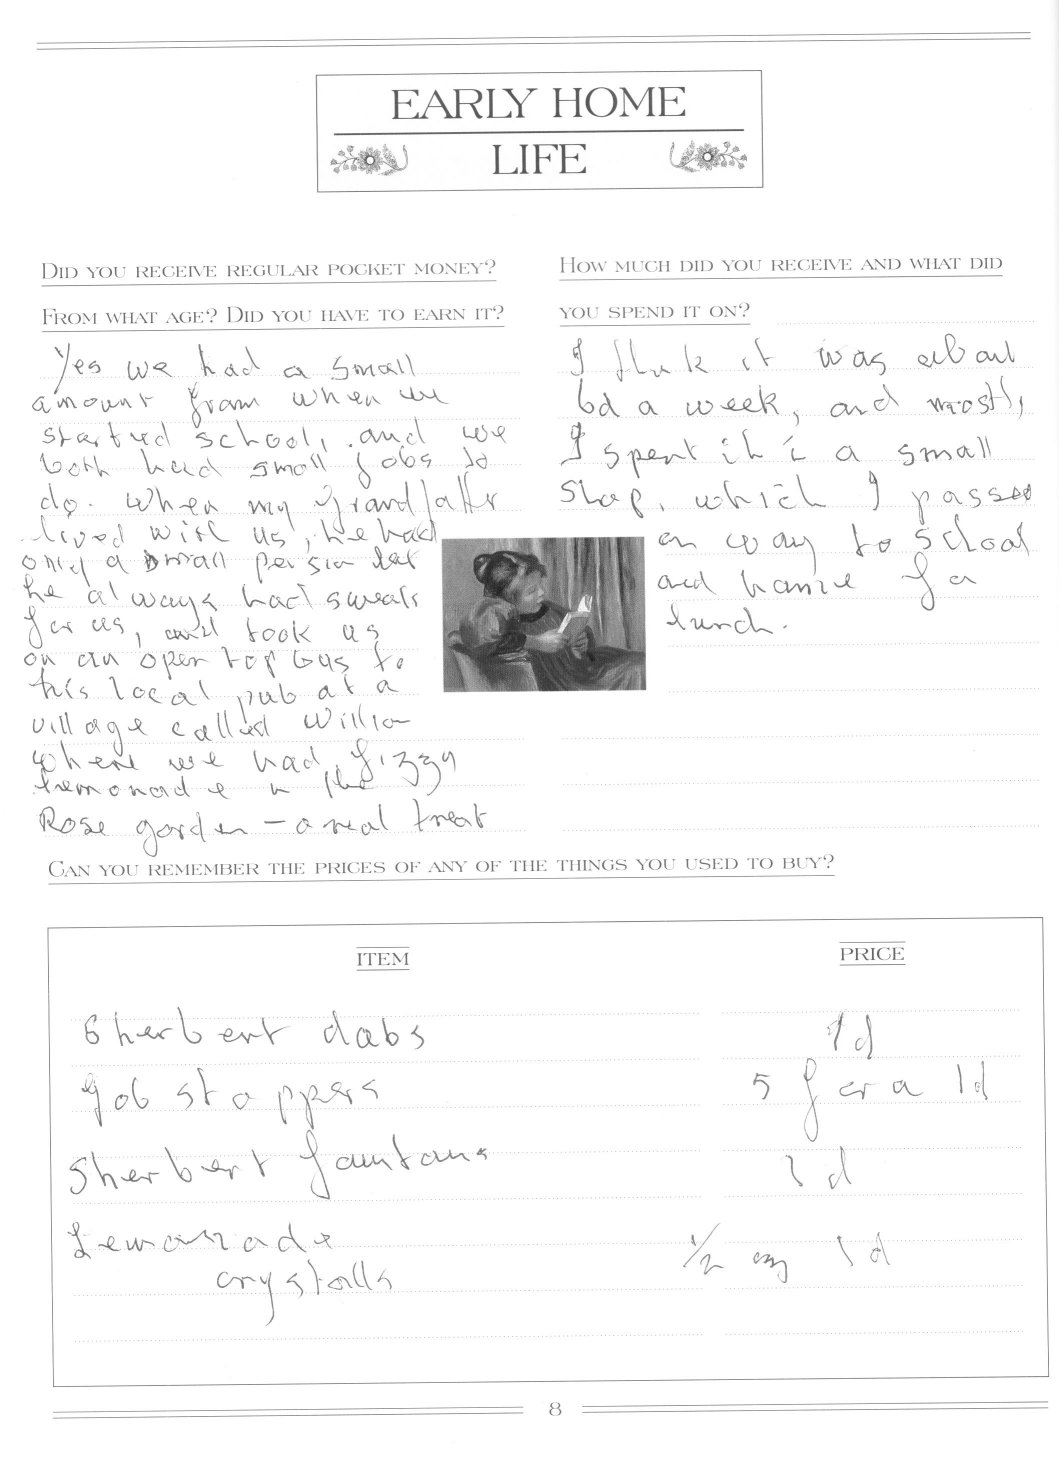 EARLY HOME
LIFE
DID YOU RECEIVE REGULAR POCKET MONEY?
FROM WHAT AGE? DID YOU HAVE TO EARN IT?
Yes we had a small
amount from when we
started school, and we
both had small jobs to
do. When my Grandfather
lived with us, he had
only a small pension but
he always had sweets
for us, and took us
on an open top bus to
his local pub at a
village called Willian
where we had fizzy
lemonade in the
Rose garden - a real treat
HOW MUCH DID YOU RECEIVE AND WHAT DID
YOU SPEND IT ON?
I think it was about
6d a week, and mostly
I spent it in a small
shop, which I passed
on way to school
and home for
lunch.
CAN YOU REMEMBER THE PRICES OF ANY OF THE THINGS YOU USED TO BUY?
ITEM PRICE
Sherbert dabs 1d
gob stoppers 5 for a 1d
Sherbert fountans 1d
Lemonade
crystalls 1/2 oz 1d
8